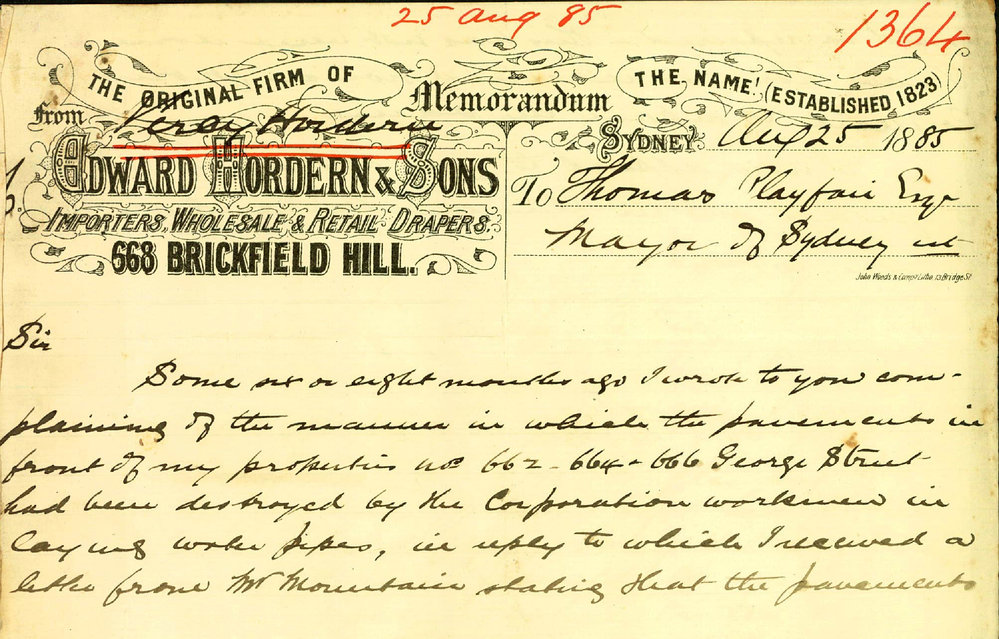 25 Aug 85
1364
THE ORIGINAL FIRM OF
from
Percy Hordern
EDWARD HORDERN & SONS
IMPORTERS, WHOLESALE & RETAIL DRAPERS.
668 BRICKFIELD HILL.
Memorandum
THE NAME! (ESTABLISHED 1823)
SYDNEY Aug 25 1885
To Thomas Playfair Esqr
Mayor of Sydney
John Woods & Comp'y Litho. 13 Bridge St
Sir
Some six or eight months ago I wrote to you com-
plaining of the manner in which the pavements in
front of my properties nos 662 - 664 - 666 George Street
had been destroyed by the Corporation workmen in
laying water pipes, in reply to which I received a
letter from Mr Mountain stating that the pavements